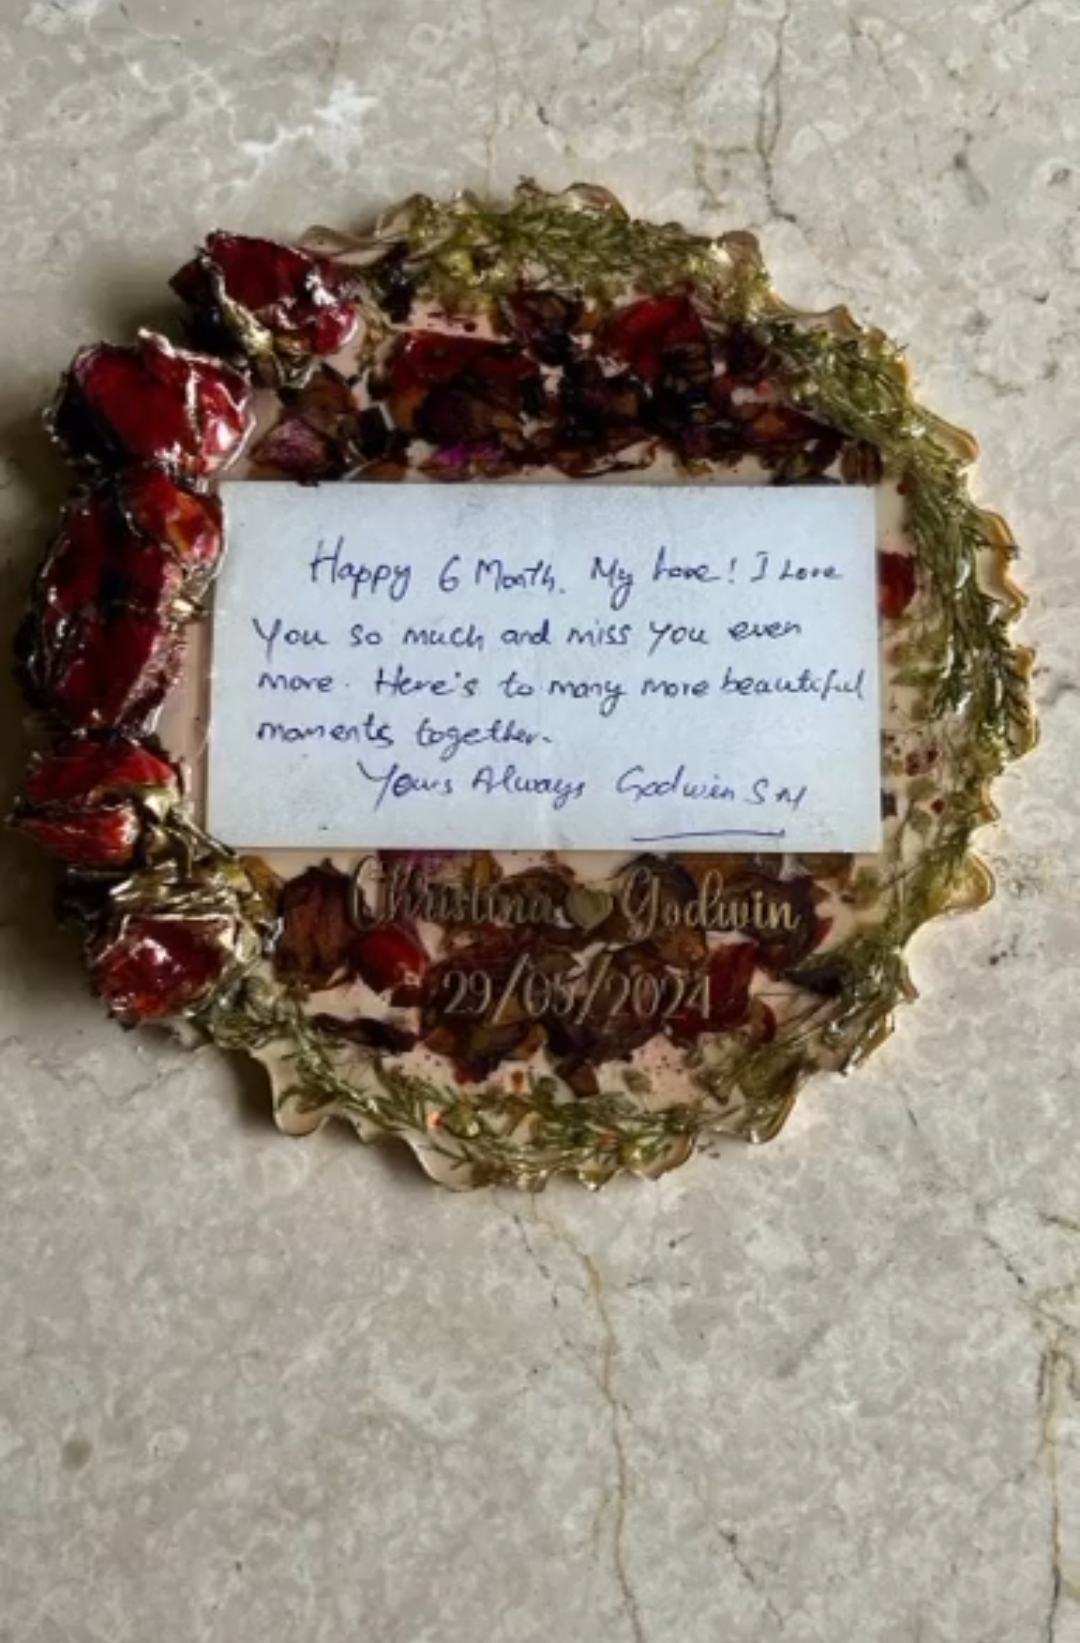 Happy 6 Month. My Love! I Love
You so much and miss you even
more. Here's to many more beautiful
moments together.
Yours Always Godwin S M
Christina Godwin
29/05/2024